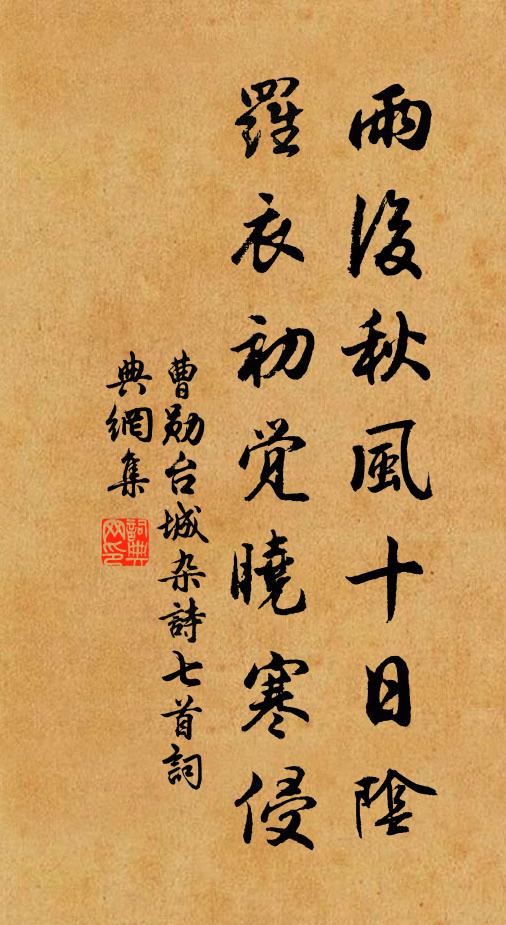 雨後秋風十日陰
羅衣初覺曉寒侵
曹勛台城杂詩七首詞
典網集
詞典网印